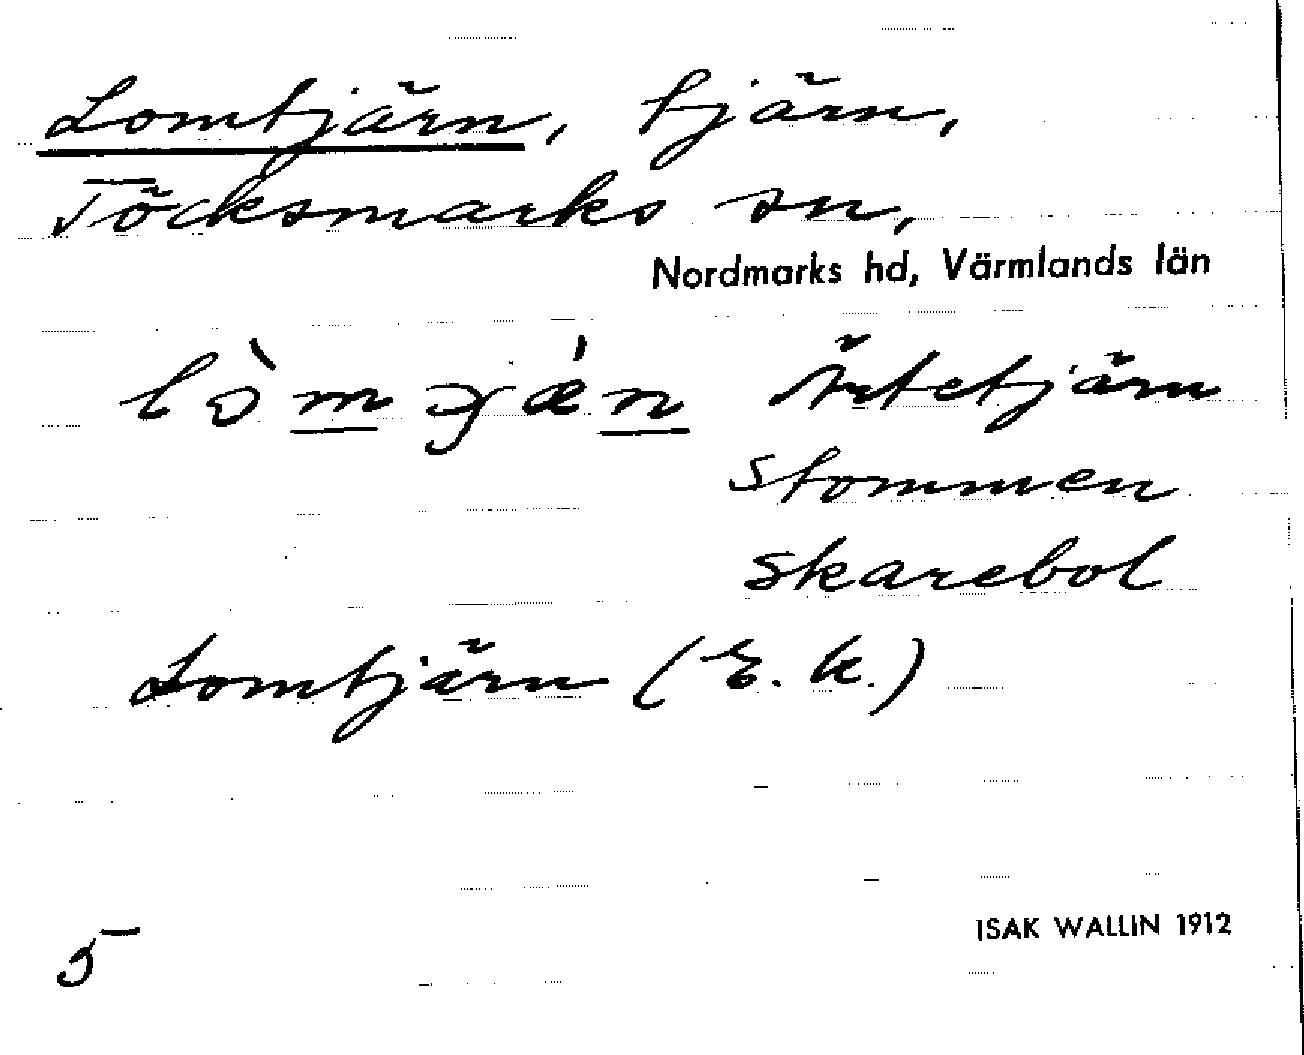 Lomtjärn, tjärn,
Töcksmarks sn,
Nordmarks hd, Värmlands län
Ärtetjärn
Stommen
Skarebol
Lomtjärn (E. k.)
5
ISAK WALLIN 1912